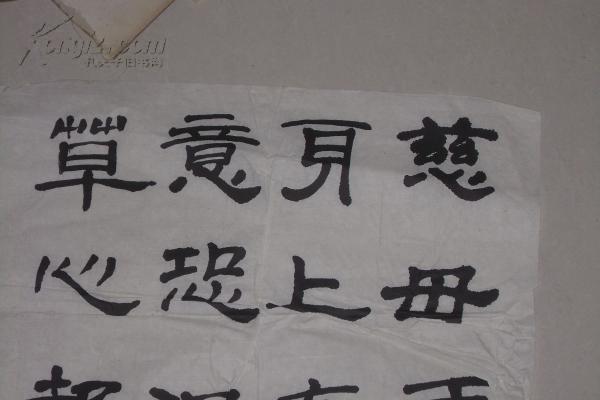 慈母
身上
意恐
草心
Kongfz.com
孔夫子旧书网